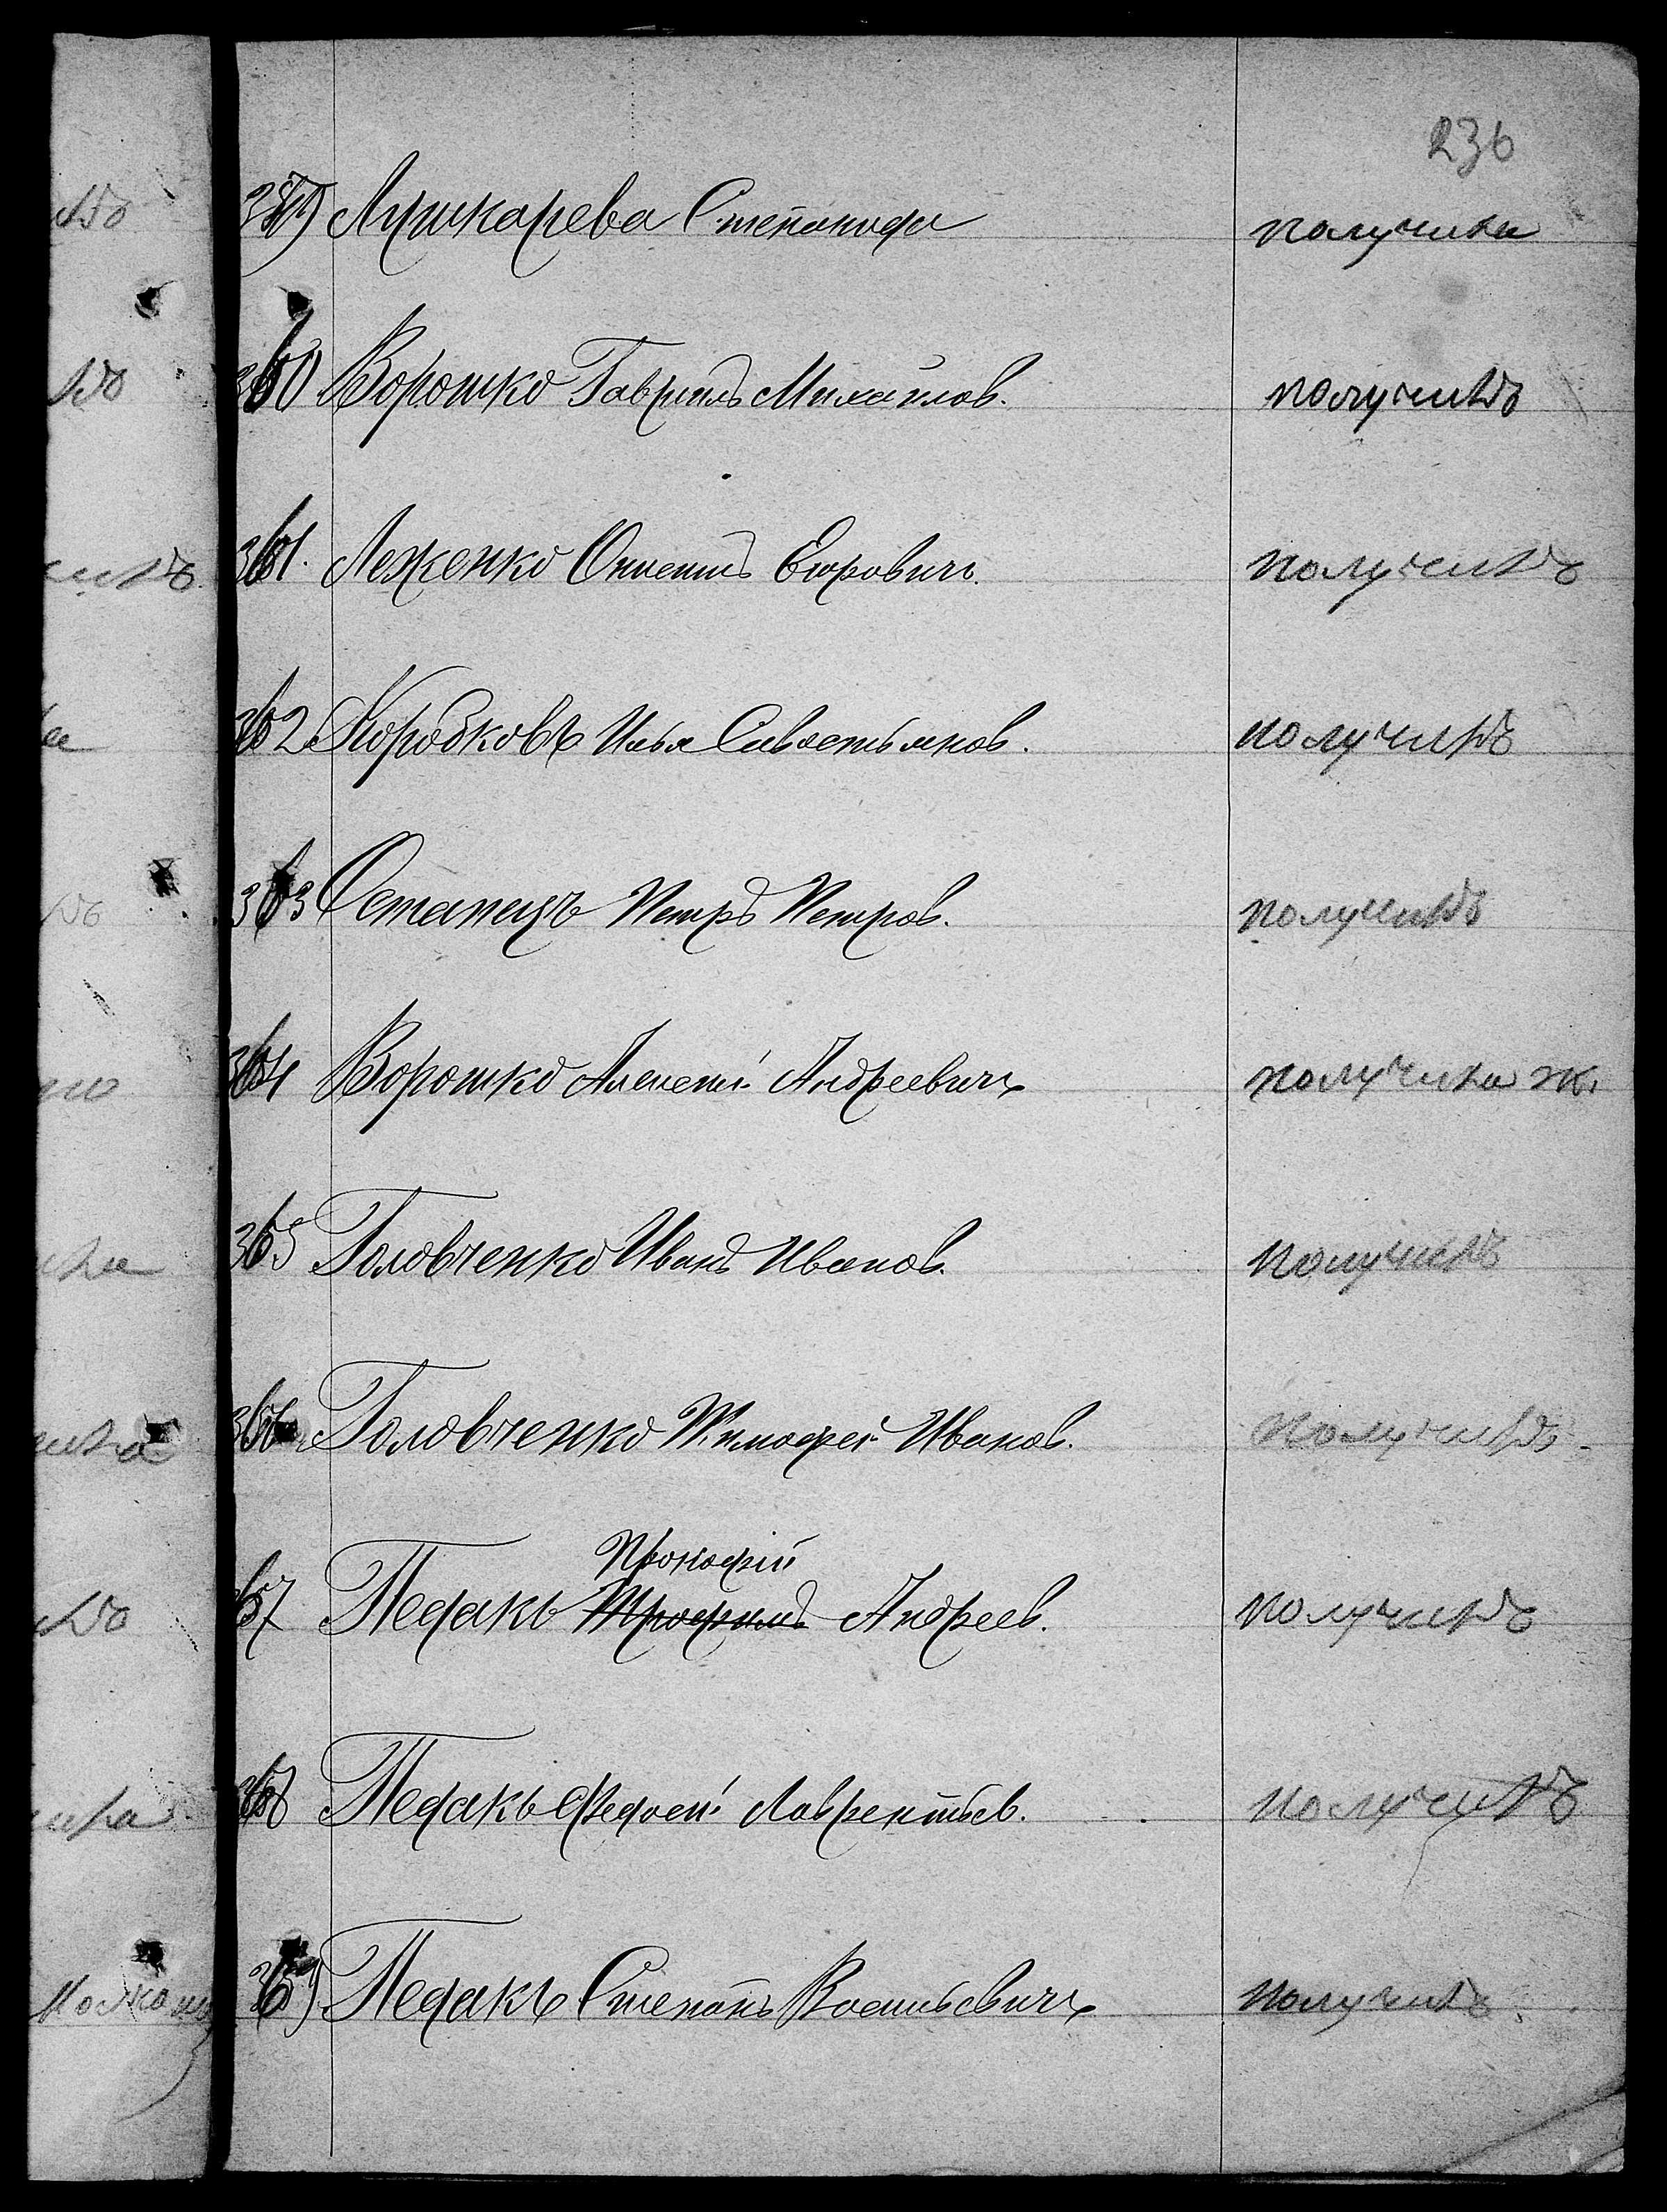 236
359) Лушкарева Степанида получила
360 Ворошко Гавриилъ Михайлов. получилъ
361. Леженко Онисимъ Егорович. получилъ
362 Коробковъ Илья Савостьянов. получилъ
363 Останецъ Петръ Петров. получилъ
364 Ворошко Алексей Андреевичъ получила ж.
365 Головченко Иванъ Иванов. получилъ
366 Головченко Тимофей Иванов. получилъ
Прокофий
367 Педакъ Трофимъ Андреев. получилъ
368 Педакъ Федосей Лаврентьев. получилъ
369 Педакъ Степанъ Васильевичъ получилъ.